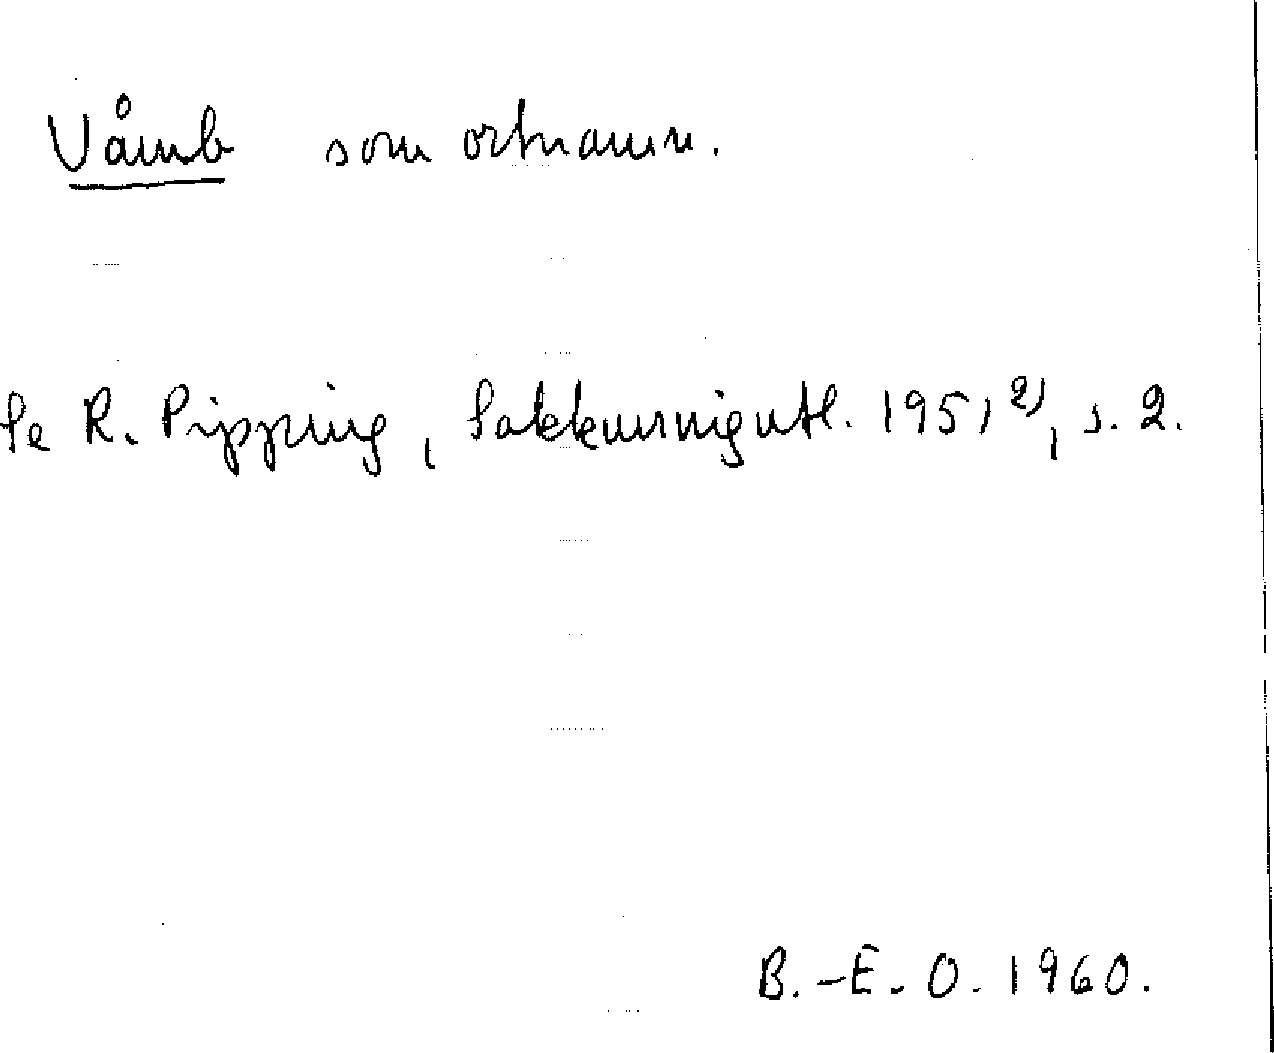 Våmb som ortnamn.
Se R. Pipping, Sakkunnigutl. 1951 2), s. 2.
B.-E. O. 1960.